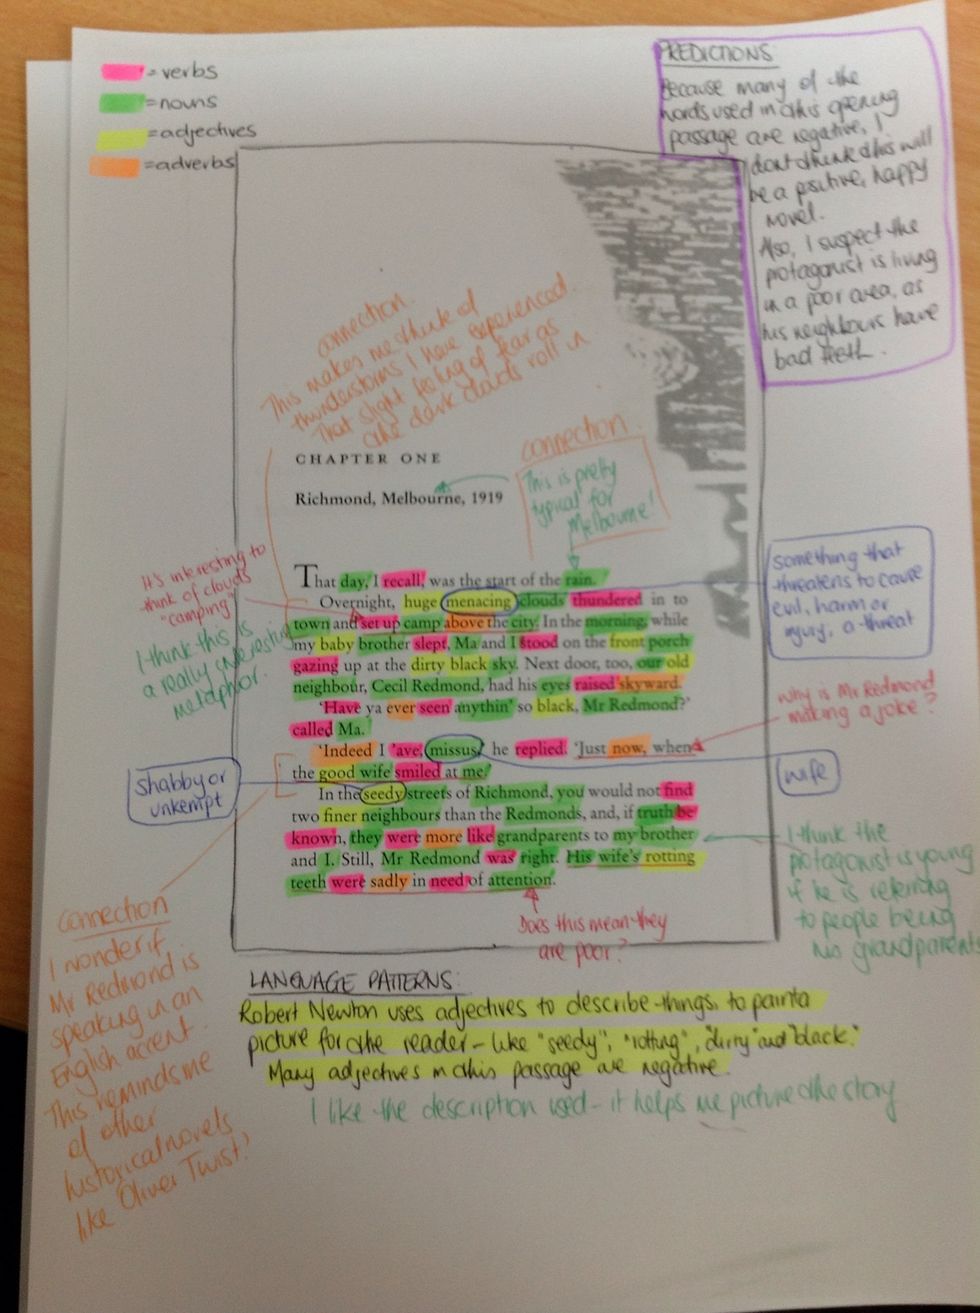 = verbs
= nouns
= adjectives
= adverbs
PREDICTIONS:
Because many of the
words used in this opening
passage are negative, I
don't think this will
be a positive, happy
novel.
Also, I suspect the
protagonist is living
in a poor area, as
his neighbours have
bad teeth.
connection.
This makes me think of
thunderstorms I have experienced.
That slight feeling of fear as
the dark clouds roll in
CHAPTER ONE
Richmond, Melbourne, 1919
connection.
This is pretty
typical for
Melbourne!
It's interesting to
think of clouds
"camping"
I think this is
a really interesting
metaphor.
That day, I recall, was the start of the rain.
Overnight, huge menacing clouds thundered in to
town and set up camp above the city. In the morning, while
my baby brother slept, Ma and I stood on the front porch
gazing up at the dirty black sky. Next door, too, our old
neighbour, Cecil Redmond, had his eyes raised skyward.
'Have ya ever seen anythin' so black, Mr Redmond?'
called Ma.
'Indeed I 'ave, missus,' he replied. 'Just now, when
the good wife smiled at me.'
In the seedy streets of Richmond, you would not find
two finer neighbours than the Redmonds, and, if truth be
known, they were more like grandparents to my brother
and I. Still, Mr Redmond was right. His wife's rotting
teeth were sadly in need of attention.
something that
threatens to cause
evil, harm or
injury, a threat
why is Mr Redmond
making a joke?
wife
shabby or
unkempt
I think the
protagonist is young
if he is referring
to people being
his grandparents
Does this mean they
are poor?
Connection
I wonder if
Mr Redmond is
speaking in an
English accent.
This reminds me
of other
historical novels
like 'Oliver Twist'
LANGUAGE PATTERNS:
Robert Newton uses adjectives to describe things, to paint a
picture for the reader - like "seedy", "rotting", "dirty" and "black."
Many adjectives in this passage are negative.
I like the description used - it helps me picture the story